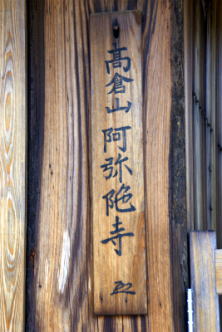 高倉山阿弥陀寺